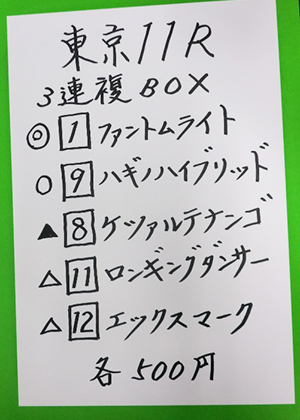 東京11R
3連複BOX
◎1ファントムライト
○9ハギノハイブリッド
▲8ケツァルテナンゴ
△11ロンギングダンサー
△12エックスマーク
各500円